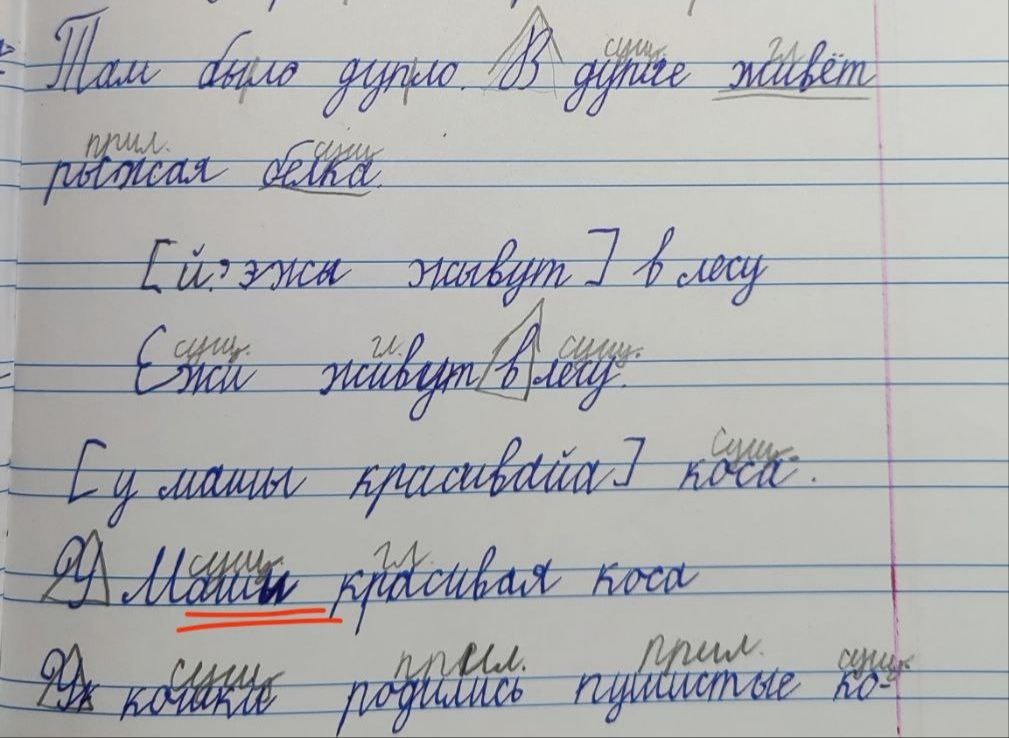 Там было дупло. В дупле живёт
сущ. гл.
рыжая белка.
прил. сущ.
[й'эжы жывут] в лесу
Ежи живут в лесу.
сущ. гл. сущ.
[у машы красивайа] коса.
сущ.
У Маши красивая коса
сущ. гл.
У кошки родились пушистые ко-
сущ. прил. прил. сущ.